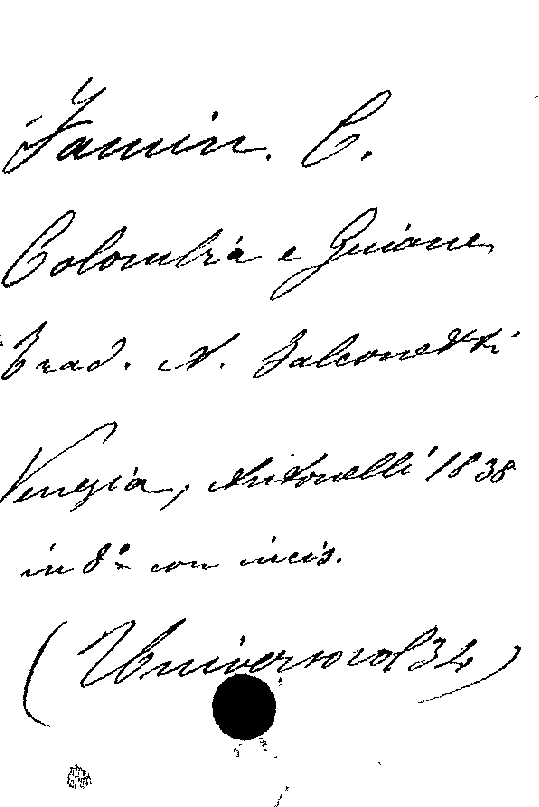 Famin. C.
Colombia e Guiane
Trad. A. Falconetti
Venezia, Antonelli 1838
in 8º con incis.
(Universo vol 34)